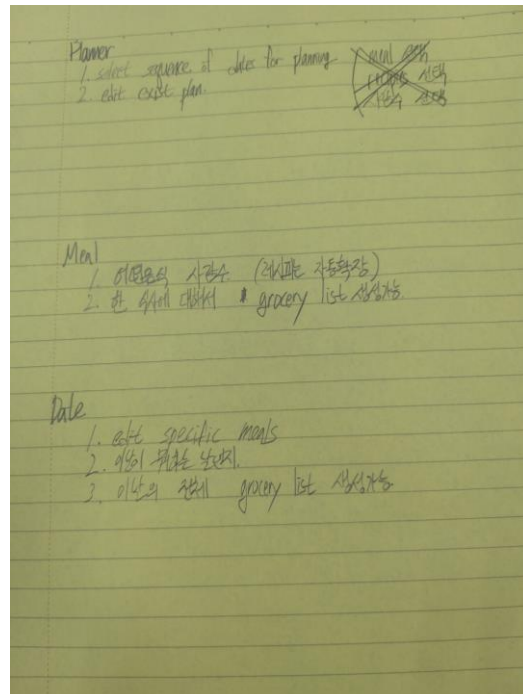 Planner
1. select sequence of dates for planning
2. edit exist plan.
meal
선택
인분수 선택
Meal
1. 어떤음식 사람수 (레시피는 자동확장)
2. 한 식사에 대해서 grocery list 생성가능.
Date
1. edit specific meals
2. 이날이 뭐하는 날인지.
3. 이날의 전체 grocery list 생성가능